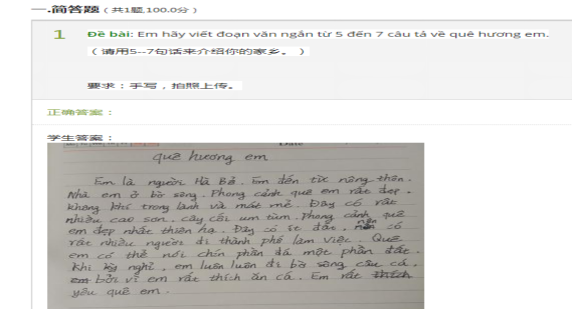 一.简答题（共1题,100.0分）
1 Đề bài: Em hãy viết đoạn văn ngắn từ 5 đến 7 câu tả về quê hương em.
（请用5--7句话来介绍你的家乡。）
要求：手写，拍照上传。
正确答案：
学生答案：
quê hương em
Em là người Hà Bẻ. Em đến từ nông thôn.
Nhà em ở bờ sông. Phong cảnh quê em rất đẹp,
không khí trong lành và mát mẻ. Đây có rất
nhiều cao sơn, cây cối um tùm. Phong cảnh quê
em đẹp nhất thiên hạ. Đây có ít đất, nên có
rất nhiều người đi thành phố làm việc. Quê
em có thể nói chín phần đá một phần đất.
Khi kỳ nghỉ, em luôn luôn đi bờ sông câu cá,
bởi vì em rất thích ăn cá. Em rất
yêu quê em.